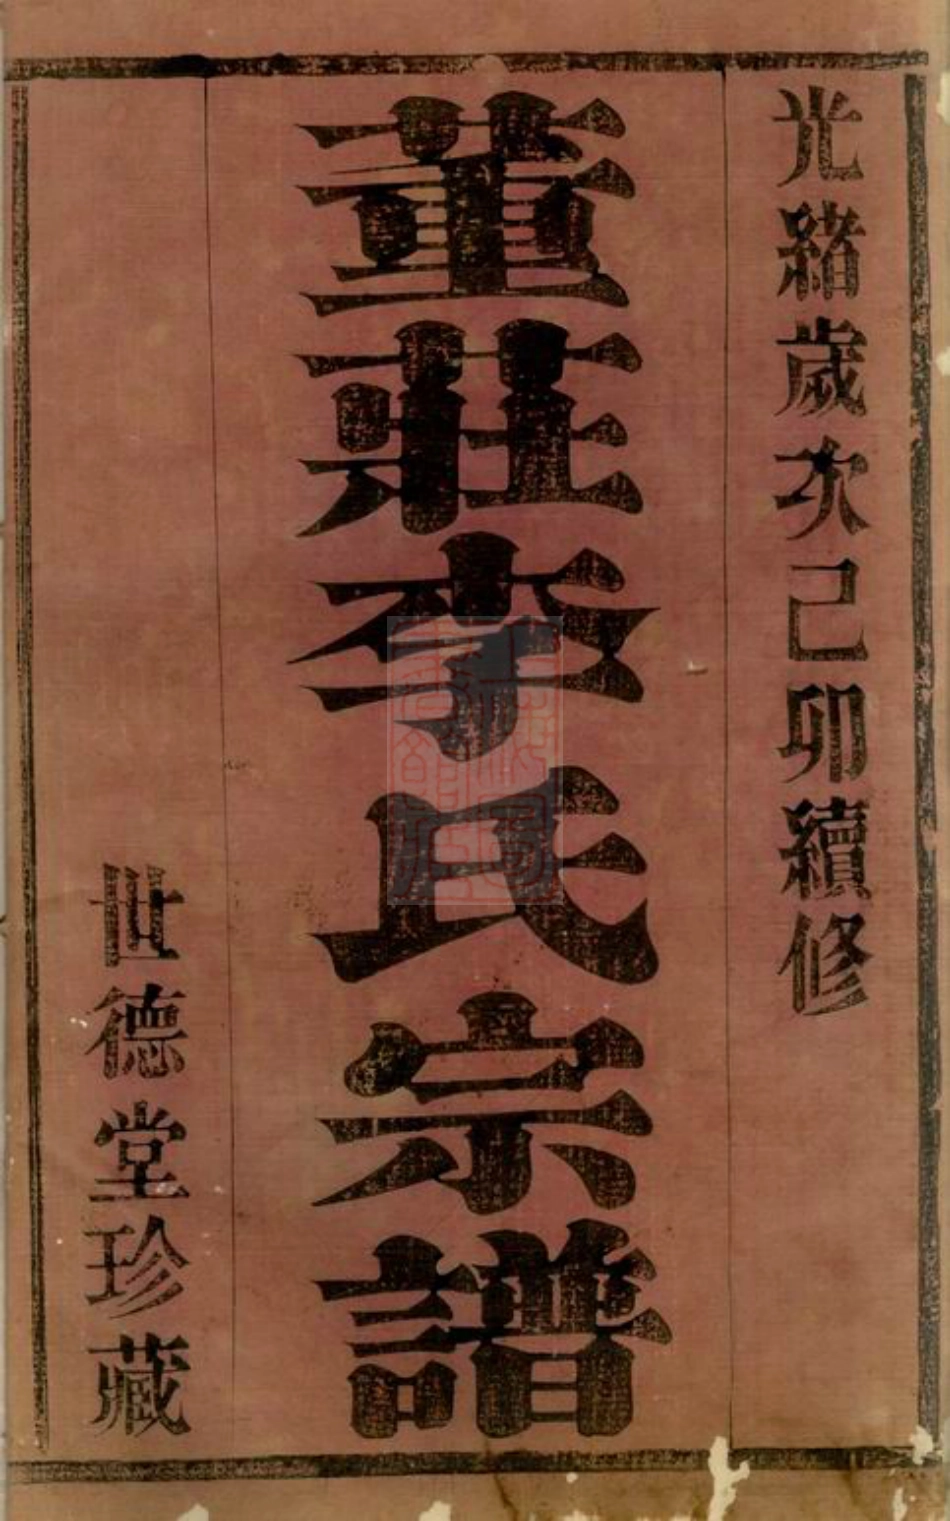 光緒歲次己卯續修
董莊李氏宗譜
世德堂珍藏